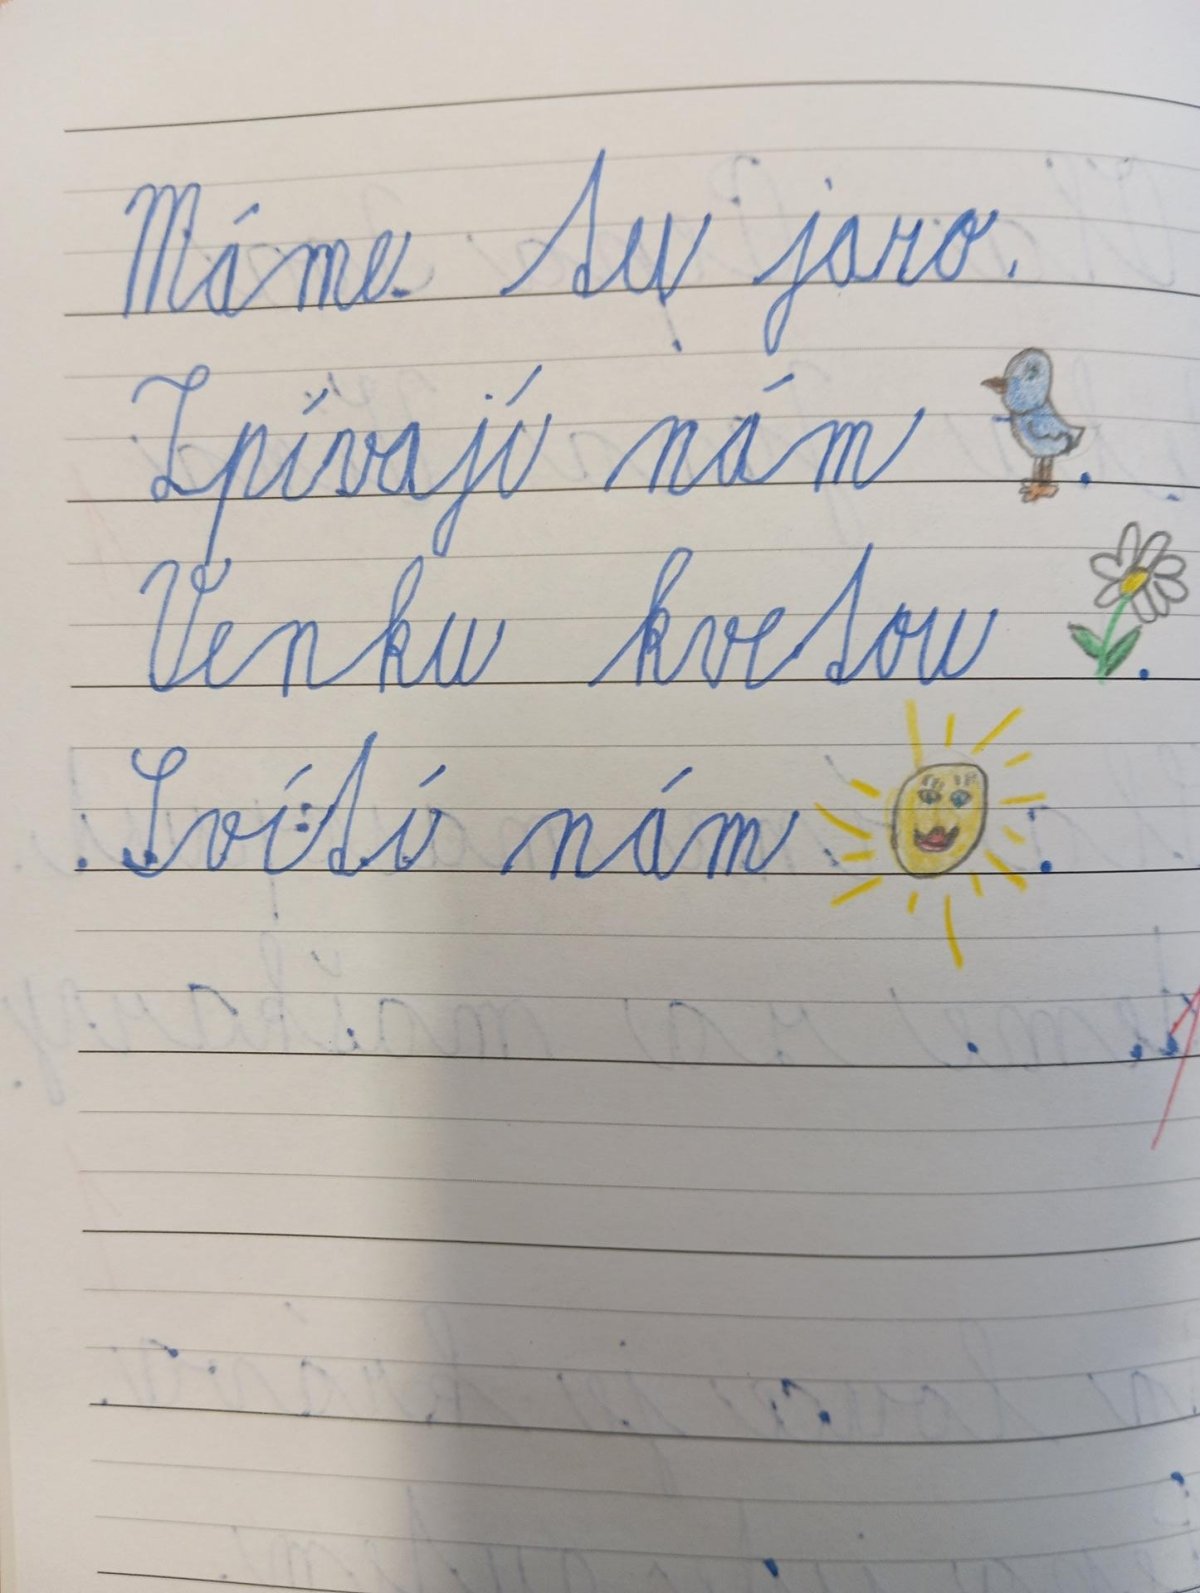 Máme tu jaro.
Zpívají nám .
Venku kvetou .
Svítí nám .